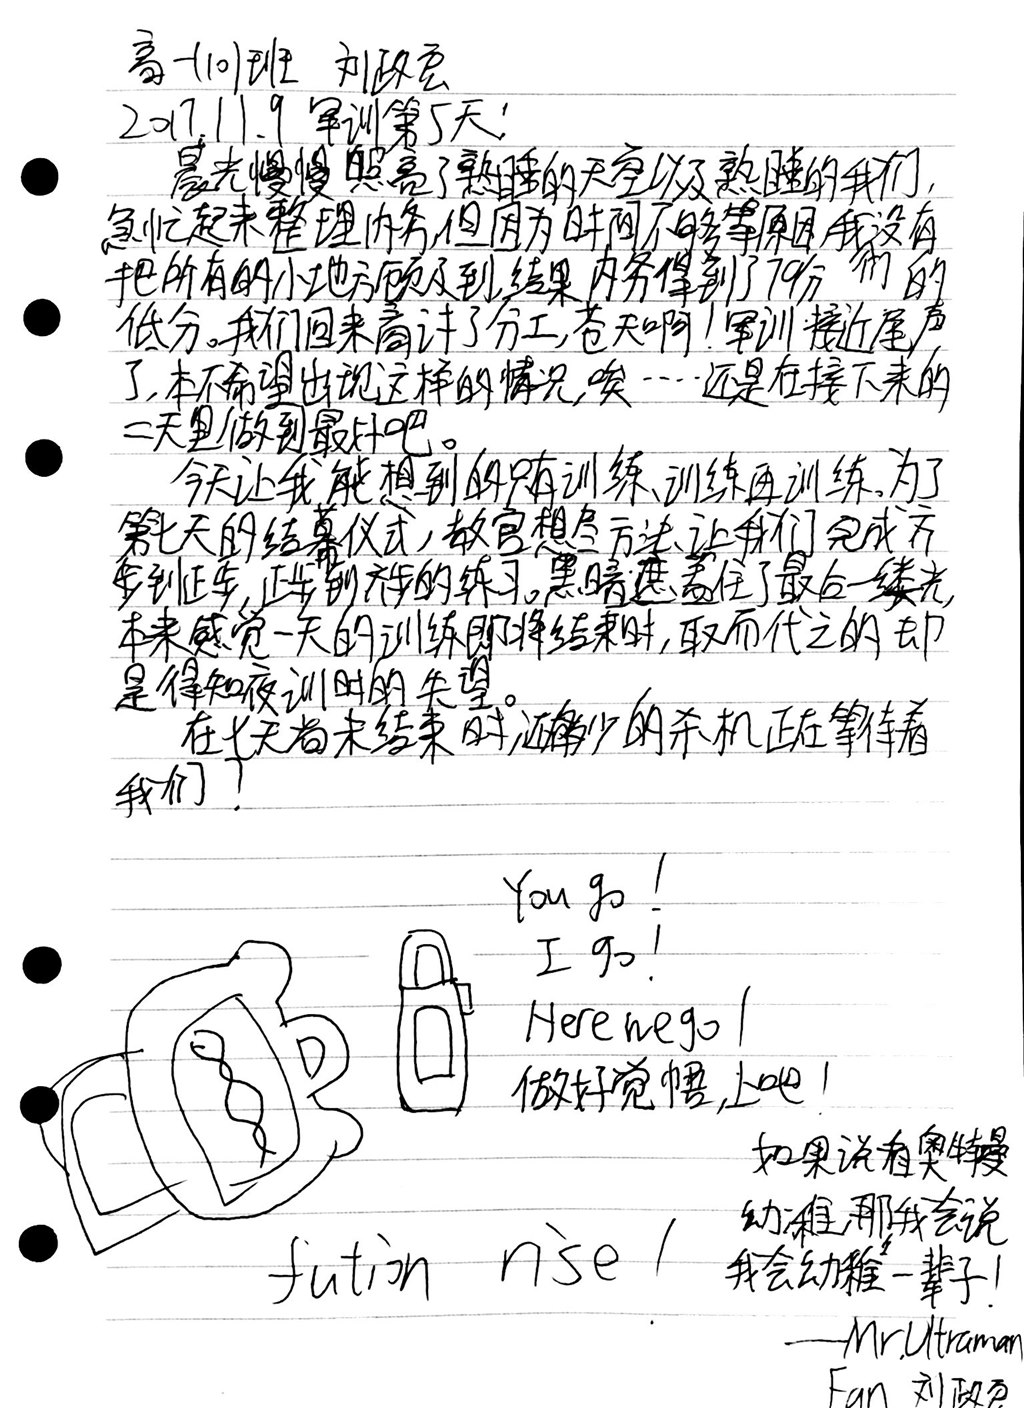 高一(10)班 刘政
2017.11.9 军训第5天!
晨光慢慢照亮了熟睡的天空以及熟睡的我们,
急忙起来整理内务,但因为时间不够等原因,我们没有
把所有的小地方顾及到,结果内务得到了79分的
低分。我们回来商讨了分工,苍天啊!军训接近尾声
了,本不希望出现这样的情况,唉……还是在接下来的
二天里做到最好吧。
今天让我能想到的只有训练、训练再训练。为了
第七天的结幕仪式,教官想尽方法让我们完成齐
步到正步,正步到齐步的练习。黑暗遮盖住了最后一缕光,
本来感觉一天的训练即将结束时,取而代之的却
是得知夜训时的失望。
在七天尚未结束时,还多少的杀机正在等待着
我们?
You go!
I go!
Here we go!
做好觉悟,上吧!
如果说看奥特曼
幼稚,那我会说
我会幼稚一辈子!
fution rise!
——Mr.Ultraman
Fan 刘政